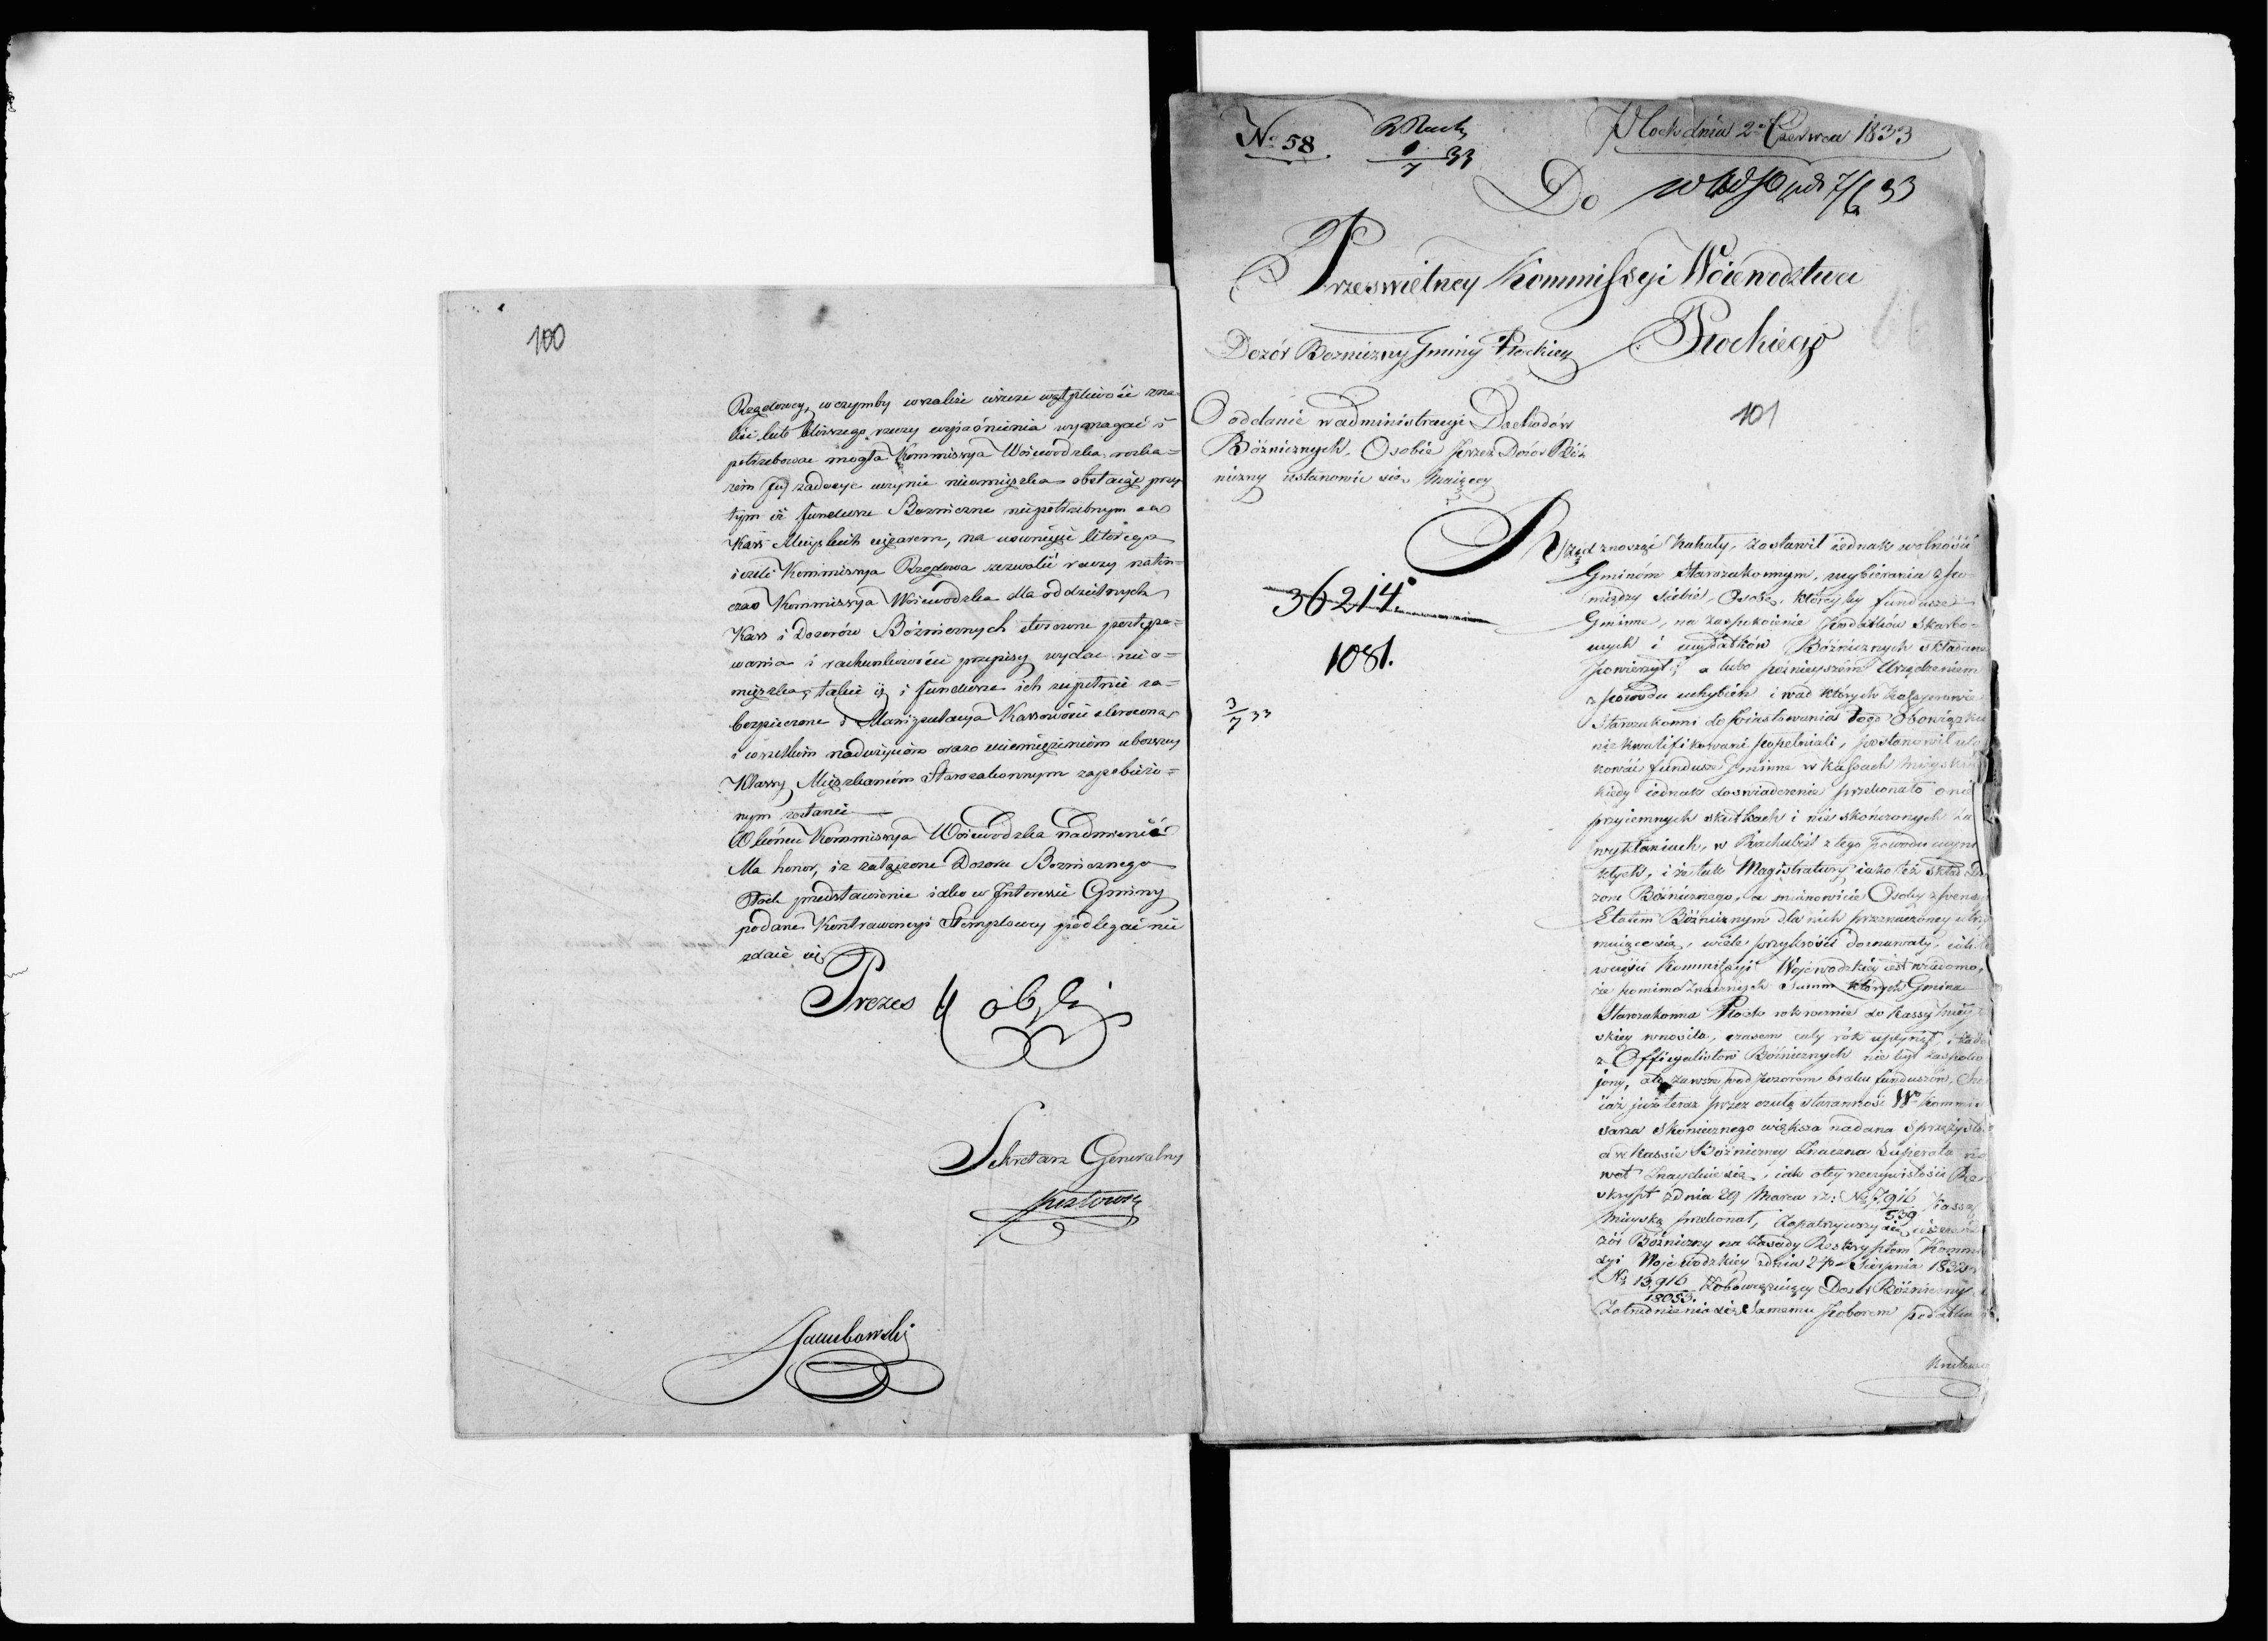 100
Rządowey, w czymby wrazie ieszcze wątpliwość zna-
leść lub bliższego rzeczy wyiaśnienia wymagać i
potrzebować mogła Kommissya Woiewodzka rozka-
zom Jey zadosyć uczynić nieomieszka obstaiąc przy
tym iż fundusze Bozniczne niepotrzebnym są
Kass Mieyskich ciężarem, na usunięcie którego
ieżeli Kommissya Rządowa zezwolić raczy naten-
czas Kommissya Woiewodzka dla oddzielnych
Kass i Dozorów Bóżnicznych stosowne postępo-
wania i rachunkowości przepisy wydać nieo-
mieszka, takie iż i fundusze ich zupełnie za-
bezpieczone i Manipulacya Kassowości sterowna
i wszelkim nadużyciom oraz uciemiężeniom uboższey
Klassy Mieszkańcom Starozakonnym zapobieżo-
nym zostanie
W końcu Kommissya Woiewódzka nadmienić
Ma honor, iż załączone Dozoru Bozniczego
Płock przedstawienie iako w Interessie Gminy
podane Kontrawencyi Stemplowey podlegać nie
zdaie się
Prezes
Sekretarz Generalny
Jakubowski
No 58
7 33
Płock dnia 2 Czerwca 1833
Do
7/6 33
Prześwietney Kommissyi Woiewodztwa
Płockiego
Dozór Bozniczny Gminy Płockiey
101
O oddanie w administracyi Dochodów
Bóżnicznych, Osobie przez Dozór Bóż
niczny ustanowić się Maiącey
36214.
1081.
3/7 33
Rząd znosząc Kahały, zostawił iednak wolność
Gminom Starozakonnym, wybierania z po-
między siebie, Osoby, którey by fundusze
Gminne, na zaspokoienie Podatków Skarbo-
wych i wydatków Bóżnicznych składane
powierzyli; a lubo późnieyszém Urządzeniem
z powodu uchybień i wad których Kassyerowie
Starozakonni do piastowania tego Obowiązku
niekwalifikowani popełniali, postanowił ulo
kować fundusze Gminne w Kassach Mieyskich
kiedy iednak doświadczenie przekonało o nie
przyiemnych skutkach i nieskończonych za
wikłaniach, w Rachubie z tego powodu wyni
kłych, i że tak Magistratury iako też skład Do
zoru Bóżnicznego, a mianowicie Osoby z pensyi
Etatem Bóżnicznym dla nich przeznaczoney utrzy
muiące się, wiele przykrości doznawały, iak
Kommissyi Wojewodzkiey iest wiadomo,
że pomimo znacznych Summ których Gmina
Starozakonna Płock rokrocznie do Kassy Miey
skiey wnosiła, czasem cały rok upłynął, i żaden
z Officyalistów Bóżnicznych nie był zaspoko
jony, ale zawsze pod pozorem braku funduszów, Cho
ciaż już teraz przez czułą staranność Wgo Kommis
sarza Ekonicznego większa nadana sprężystość
a w Kassie Bóżniczney Znaczna Superata na
wet Znayduie się, iak o tey rzeczywistości Re
skrypt z dnia 29 Marca r. b. No 7,916/539 Kassę
Mieyską przekonał, Zapatrywszy się ieszcze Do
zór Bóżniczny na Zasady Reskryptem Kommis
syi Wojewodzkiey z dnia 27 Sierpnia 1832 r
No 13,916/18053. Zobowiązuiący Dozór Bóżniczny do
Zatrudnienia się Samemu poborem podatku